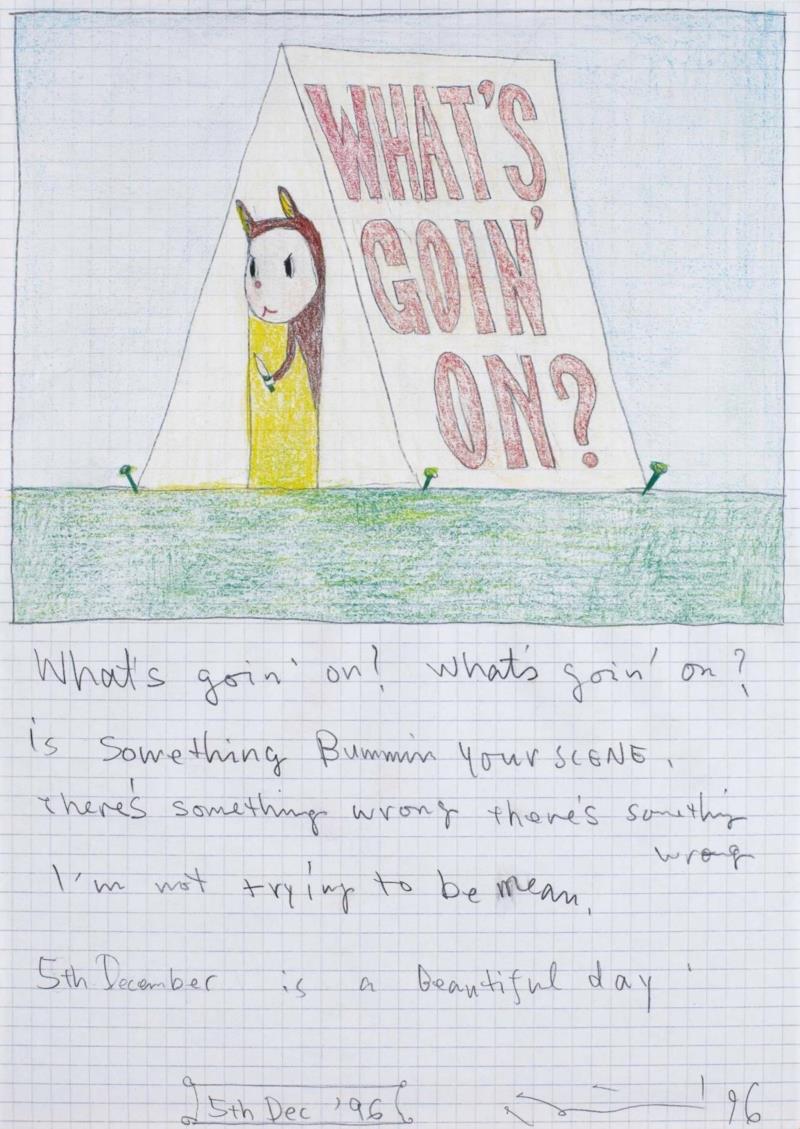 WHAT'S
GOIN'
ON?
What's goin' on? what's goin' on?
is something Bummin your SCENE.
there's something wrong there's somethig
wrong
I'm not trying to be mean.
5th December is a beautiful day
5th Dec '96
'96